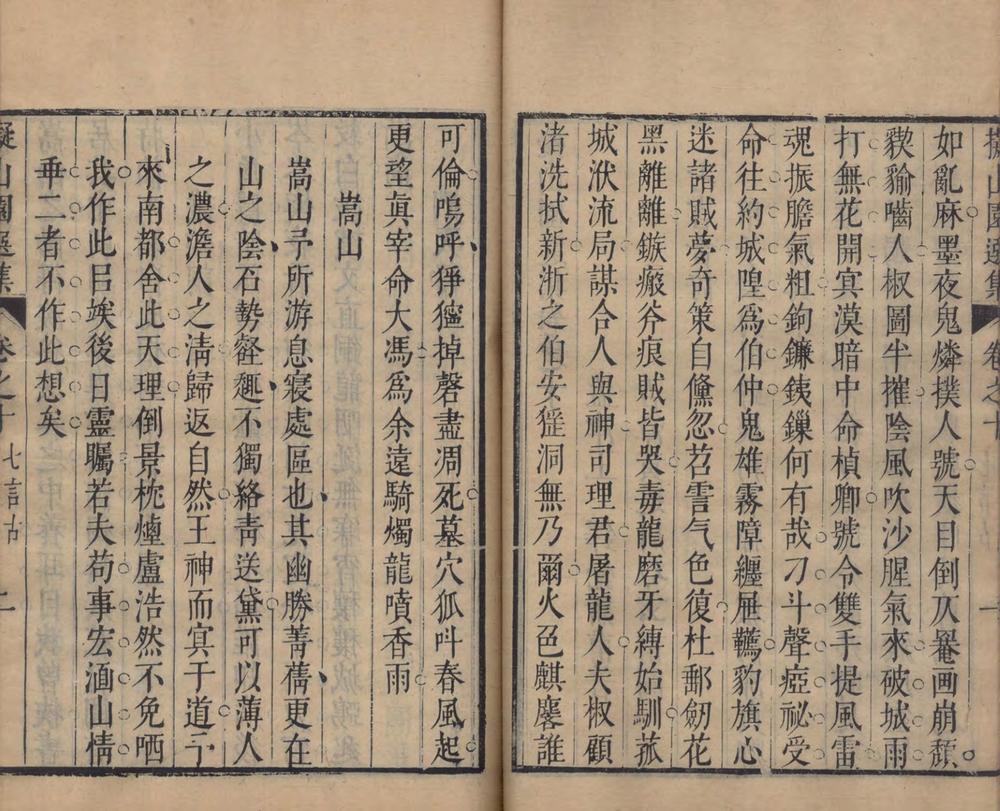 擬山園選集 卷之十 一
如亂麻墨夜鬼燐撲人號天目倒仄鼇画崩頹
猰貐嚙人椒圖半摧陰風吹沙腥氣來破城雨
打無花開㝠漠暗中命楨卿號令雙手提風雷
魂振膽氣粗鉤鐮銕鏁何有哉刁斗聲瘂祕受
命往約城隍爲伯仲鬼雄霧障纏屉鷣豹旗心
迷諸賊夢奇策自儵忽苕霅气色復杜郵劒花
黑離離鏃瘢斧痕賊皆哭毒龍磨牙縛始馴菰
城洑流局謀合人與神司理君屠龍人夫椒顧
渚洗拭新浙之伯安獞洞無乃爾火色麒麐誰
可倫嗚呼猙獰掉磬盡凋死墓穴狐呌春風起
更望眞宰命大馮爲余遠騎燭龍噴香雨
嵩山
嵩山予所游息寢處區也其幽勝菁蒨更在
山之陰石勢硿䟃不獨絡青送黛可以薄人
之濃澹人之淸歸返自然王神而㝠于道予
來南都舍此天理倒景枕㷮盧浩然不免哂
我作此㠯竢後日靈矚若夫苟事宏湎山情
乖二者不作此想矣
擬山園選集 卷之十 七言古 二